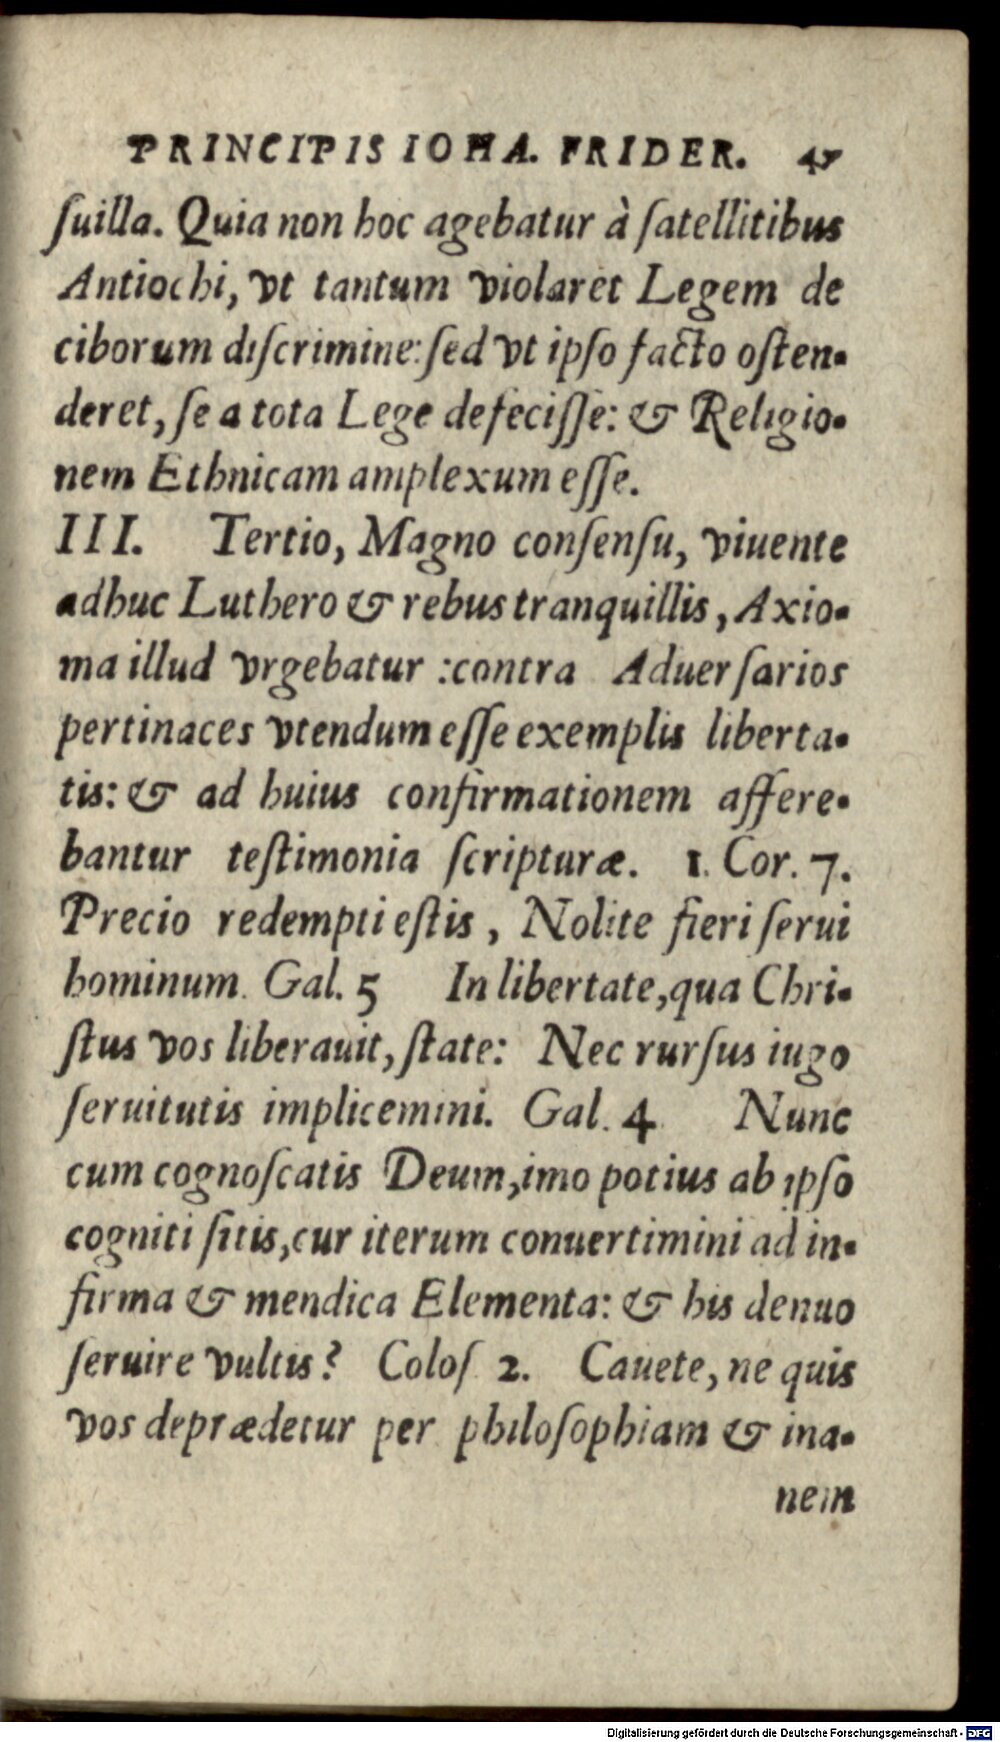 PRINCIPIS IOHA. FRIDER.
ſuilla. Quia non hoc agebatur à ſatellitibus
Antiochi, vt tantum violaret Legem de
ciborum diſcrimine: ſed vt ipſo facto oſten-
deret, ſe a tota Lege defeciſſe: & Religio-
nem Ethnicam amplexum eſſe.
III. Tertio, Magno conſenſu, viuente
adhuc Luthero & rebus tranquillis, Axio-
ma illud vrgebatur : contra Aduerſarios
pertinaces vtendum eſſe exemplis liberta-
tis: & ad huius confirmationem affere-
bantur teſtimonia ſcripturæ. 1. Cor. 7.
Precio redempti eſtis, Nolite fieri ſerui
hominum. Gal. 5 In libertate, qua Chri-
ſtus vos liberauit, ſtate: Nec rurſus iugo
ſeruitutis implicemini. Gal. 4 Nunc
cum cognoſcatis Deum, imo potius ab ipſo
cogniti ſitis, cur iterum conuertimini ad in-
firma & mendica Elementa: & his denuo
ſeruire vultis? Coloſ 2. Cauete, ne quis
vos deprædetur per philoſophiam & ina-
nem
Digitalisierung gefördert durch die Deutsche Forschungsgemeinschaft - DFG